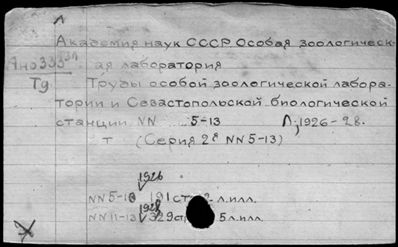 Л
Академия наук СССР Особая зоологическ-
Яно333л ая лаборатория
Тд. Труды особой зоологической лабора-
тории и Севастопольской биологической
станции NN 5-13 Л; 1926-28.
т (Серия 2я NN5-13)
1926
NN5-10 191 ст 2 л.илл.
1928
NN11-13 329 ст 5 л.илл.